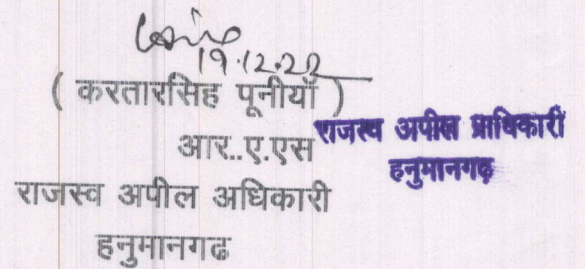 19.12.22
( करतारसिंह पूनीयाँ )
आर..ए.एस
राजस्व अपील अधिकारी
हनुमानगढ
राजस्व अपील प्राधिकारी
हनुमानगढ़